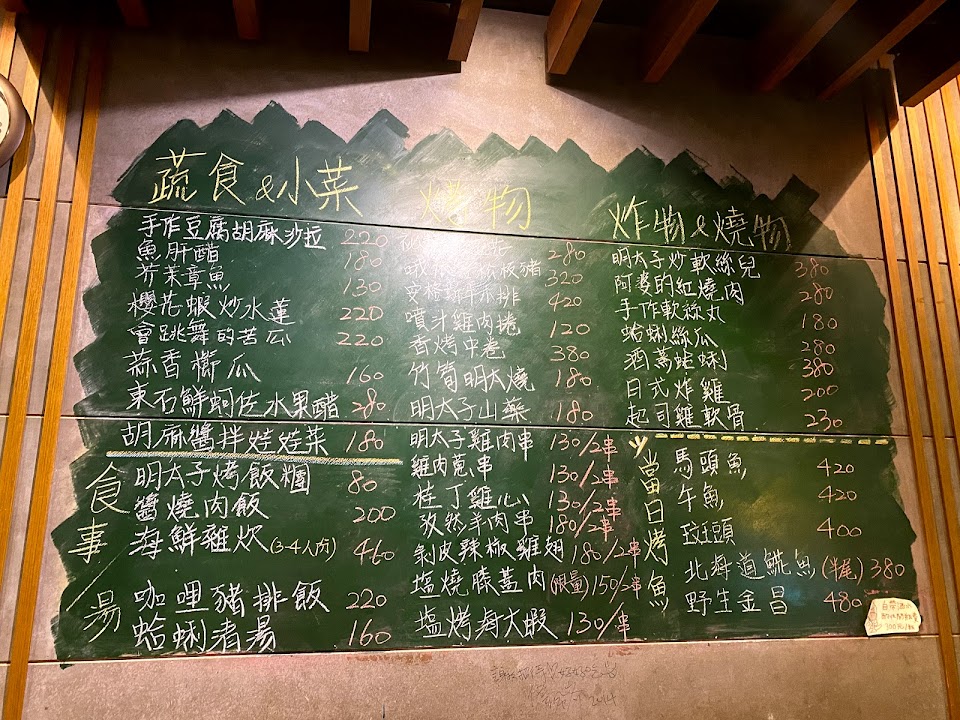 蔬食&小菜
手作豆腐胡麻沙拉 220
魚肝醋 180
芥茉章魚 130
櫻花蝦炒水蓮 220
會跳舞的苦瓜 220
蒜香櫛瓜 160
東石鮮蚵佐水果醋 280
胡麻醬拌娃娃菜 180
食事/湯
明太子烤飯糰 80
醬燒肉飯 200
海鮮雜炊(3-4人份) 460
咖哩豬排飯 220
蛤蜊清湯 160
烤物
280
松板豬 320
安格斯牛小排 420
噴汁雞肉捲 120
香烤中卷 380
竹筍明太燒 180
明太子山藥 180
明太子雞肉串 130/2串
雞肉蔥串 130/2串
桂丁雞心 130/2串
孜然羊肉串 180/2串
剝皮辣椒雞翅 180/2串
塩燒膝蓋肉(限量) 150/2串
塩烤海大蝦 130/串
炸物&燒物
明太子炒軟絲兒 380
阿婆的紅燒肉 280
手作軟絲丸 180
蛤蜊絲瓜 280
酒蒸蛤蜊 380
日式炸雞 200
起司雞軟骨 230
當日烤魚
馬頭魚 420
午魚 420
斑頭 400
北海道鯱魚(半尾) 380
野生金昌 480
2014